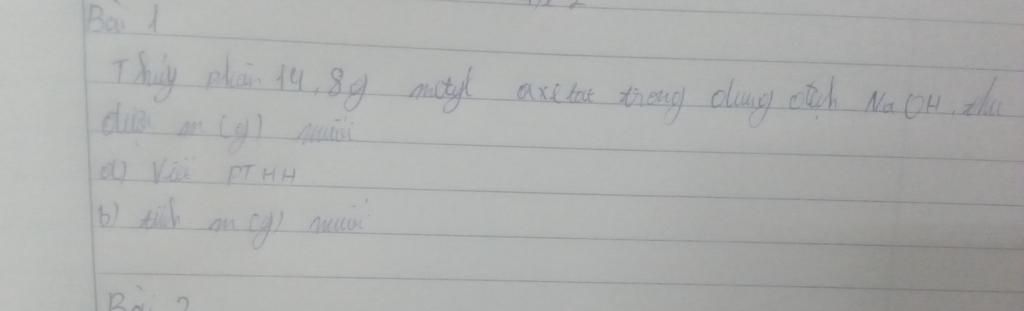 Bài 1
Thủy phân 14,8g metyl axetat trong dung dịch NaOH, thu
được m(g) muối
a) Viết PTHH
b) tính m(g) muối
Bài 2